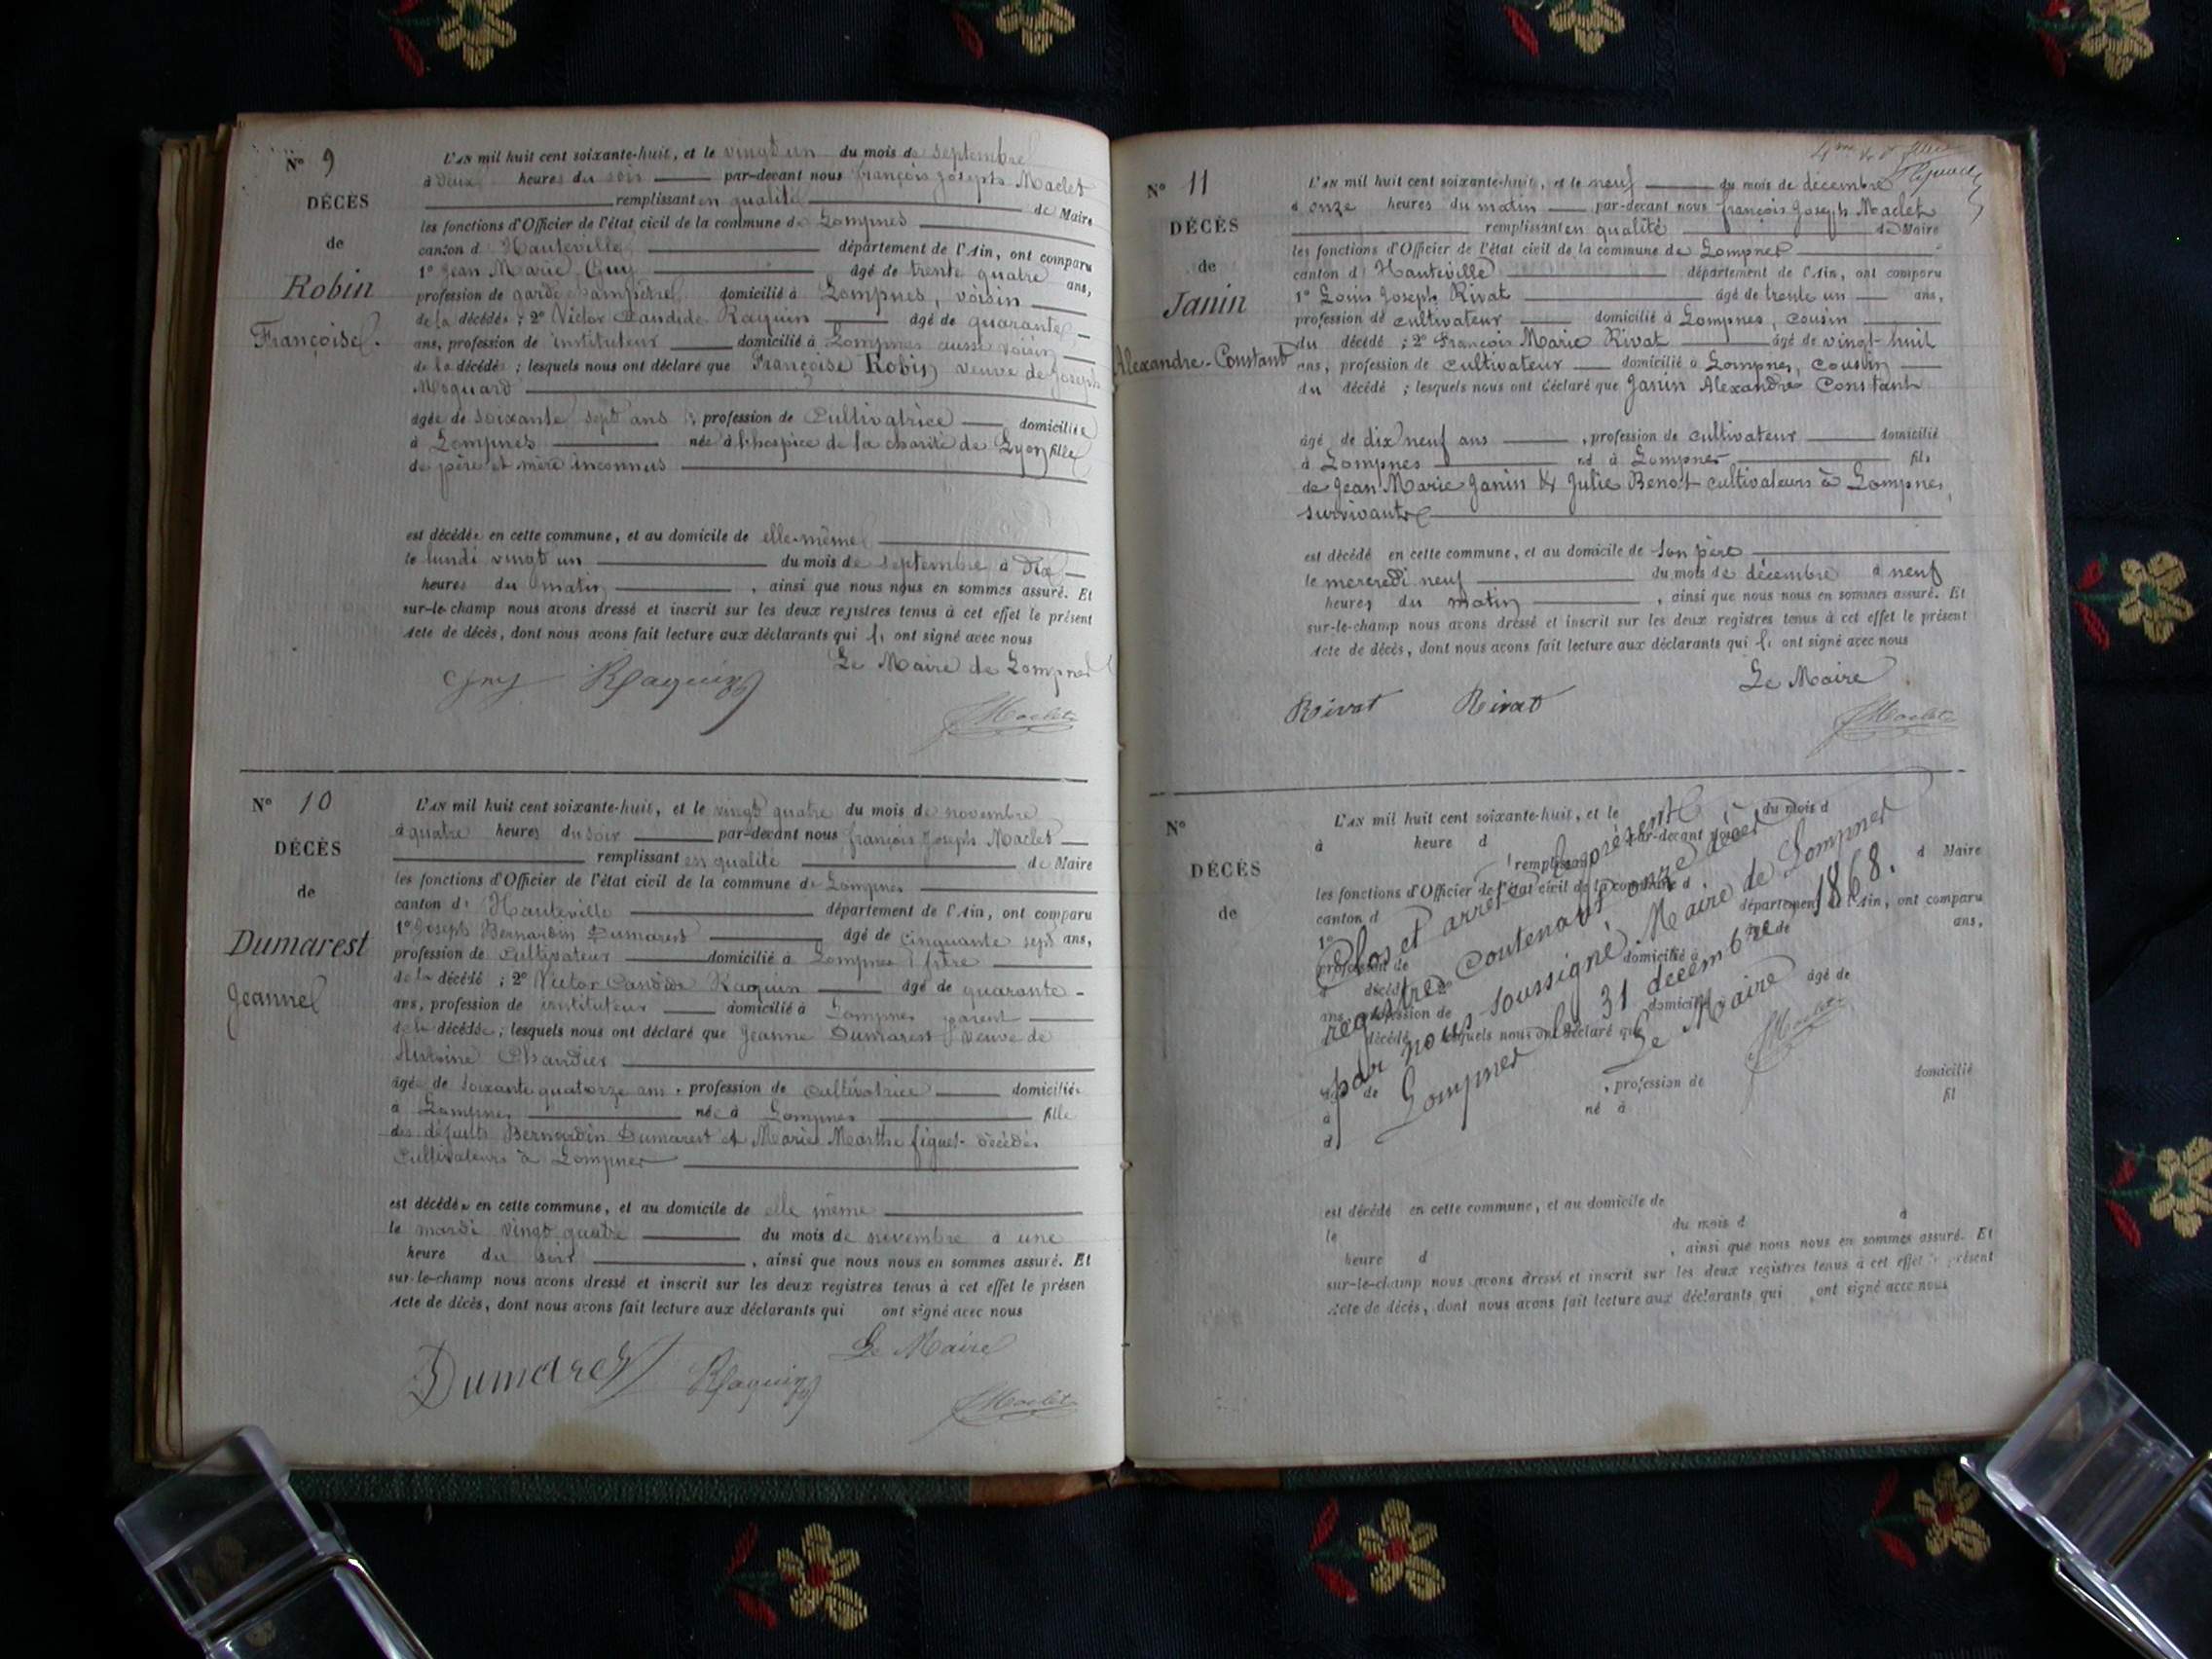 N° 9
DÉCÈS
de
Robin
Françoise.
L'AN mil huit cent soixante-huit, et le vingt un du mois de septembre
à deux heures du soir par-devant nous françois Joseph Maclet
remplissant en qualité de Maire
les fonctions d'Officier de l'état civil de la commune de Lompnes
canton d' Hauteville département de l'Ain, ont comparu
1° Jean Marie Guy âgé de trente quatre ans,
profession de garde champêtre domicilié à Lompnes, voisin
de la décédée ; 2° Victor Candide Raquin âgé de quarante
ans, profession de instituteur domicilié à Lompnes aussi voisin
de la décédée ; lesquels nous ont déclaré que Françoise Robin veuve de Joseph
âgée de soixante sept ans profession de Cultivatrice domiciliée
à Lompnes née à l'hospice de la charité de Lyon fille
de père et mère inconnus
est décédée en cette commune, et au domicile de elle-même
le lundi vingt un du mois de septembre à dix
heures du matin, ainsi que nous nous en sommes assuré. Et
sur-le-champ nous avons dressé et inscrit sur les deux registres tenus à cet effet le présent
Acte de décès, dont nous avons fait lecture aux déclarants qui ont signé avec nous
Le Maire de Lompnes
Guy Raquin
Maclet
N° 10
DÉCÈS
de
Dumarest
Jeanne
L'AN mil huit cent soixante-huit, et le vingt quatre du mois de novembre
à quatre heures du soir par-devant nous françois Joseph Maclet
remplissant en qualité de Maire
les fonctions d'Officier de l'état civil de la commune de Lompnes
canton d' Hauteville département de l'Ain, ont comparu
1° Joseph Bernardin Dumarest âgé de cinquante sept ans,
profession de Cultivateur domicilié à Lompnes frère
de la décédé ; 2° Victor Candide Raquin âgé de quarante -
ans, profession de instituteur domicilié à Lompnes parent
de la décédée ; lesquels nous ont déclaré que Jeanne Dumarest veuve de
Antoine Chandier
âgée de soixante quatorze ans, profession de cultivatrice domiciliée
à Lompnes née à Lompnes fille
des défunts Bernardin Dumarest et Marie Marthe figuet décédés
Cultivateurs à Lompnes
est décédée en cette commune, et au domicile de elle même
le mardi vingt quatre du mois de novembre à une
heure du soir, ainsi que nous nous en sommes assuré. Et
sur-le-champ nous avons dressé et inscrit sur les deux registres tenus à cet effet le présen
Acte de décès, dont nous avons fait lecture aux déclarants qui ont signé avec nous
Le Maire
Dumarest Raquin
Maclet
N° 11
DÉCÈS
de
Janin
Alexandre-Constant
L'AN mil huit cent soixante-huit, et le neuf du mois de décembre
à onze heures du matin par-devant nous françois Joseph Maclet
remplissant en qualité de Maire
les fonctions d'Officier de l'état civil de la commune de Lompnes
canton d' Hauteville département de l'Ain, ont comparu
1° Louis Joseph Rivat âgé de trente un ans,
profession de cultivateur domicilié à Lompnes, cousin
du décédé ; 2° François Marie Rivat âgé de vingt-huit
ans, profession de cultivateur domicilié à Lompnes, cousin
du décédé ; lesquels nous ont déclaré que Janin Alexandre Constant
âgé de dix neuf ans, profession de cultivateur domicilié
à Lompnes né à Lompnes fils
de Jean Marie Janin & Julie Benoit cultivateurs à Lompnes,
survivants
est décédé en cette commune, et au domicile de son père
le mercredi neuf du mois de décembre à neuf
heures du matin, ainsi que nous nous en sommes assuré. Et
sur-le-champ nous avons dressé et inscrit sur les deux registres tenus à cet effet le présent
Acte de décès, dont nous avons fait lecture aux déclarants qui ont signé avec nous
Le Maire
Rivat Rivat
Maclet
N°
DÉCÈS
de
L'AN mil huit cent soixante-huit, et le du mois d
à heure d par-devant nous
remplissant d Maire
les fonctions d'Officier de l'état civil de la commune d
canton d département de l'Ain, ont comparu
1° âgé de ans,
profession de domicilié à
d décédé 2° âgé de
ans, profession de domicilié à
d décédé lesquels nous ont déclaré que
âgé de , profession de domicilié
à né à fil
d
Clos et arrêté le présent
registre contenant onze décès
par nous soussigné Maire de Lompnes
Lompnes le 31 décembre 1868.
Le Maire
Maclet
est décédé en cette commune, et au domicile de
le du mois d à
heure d , ainsi que nous nous en sommes assuré. Et
sur-le-champ nous avons dressé et inscrit sur les deux registres tenus à cet effet le présent
Acte de décès, dont nous avons fait lecture aux déclarants qui ont signé avec nous